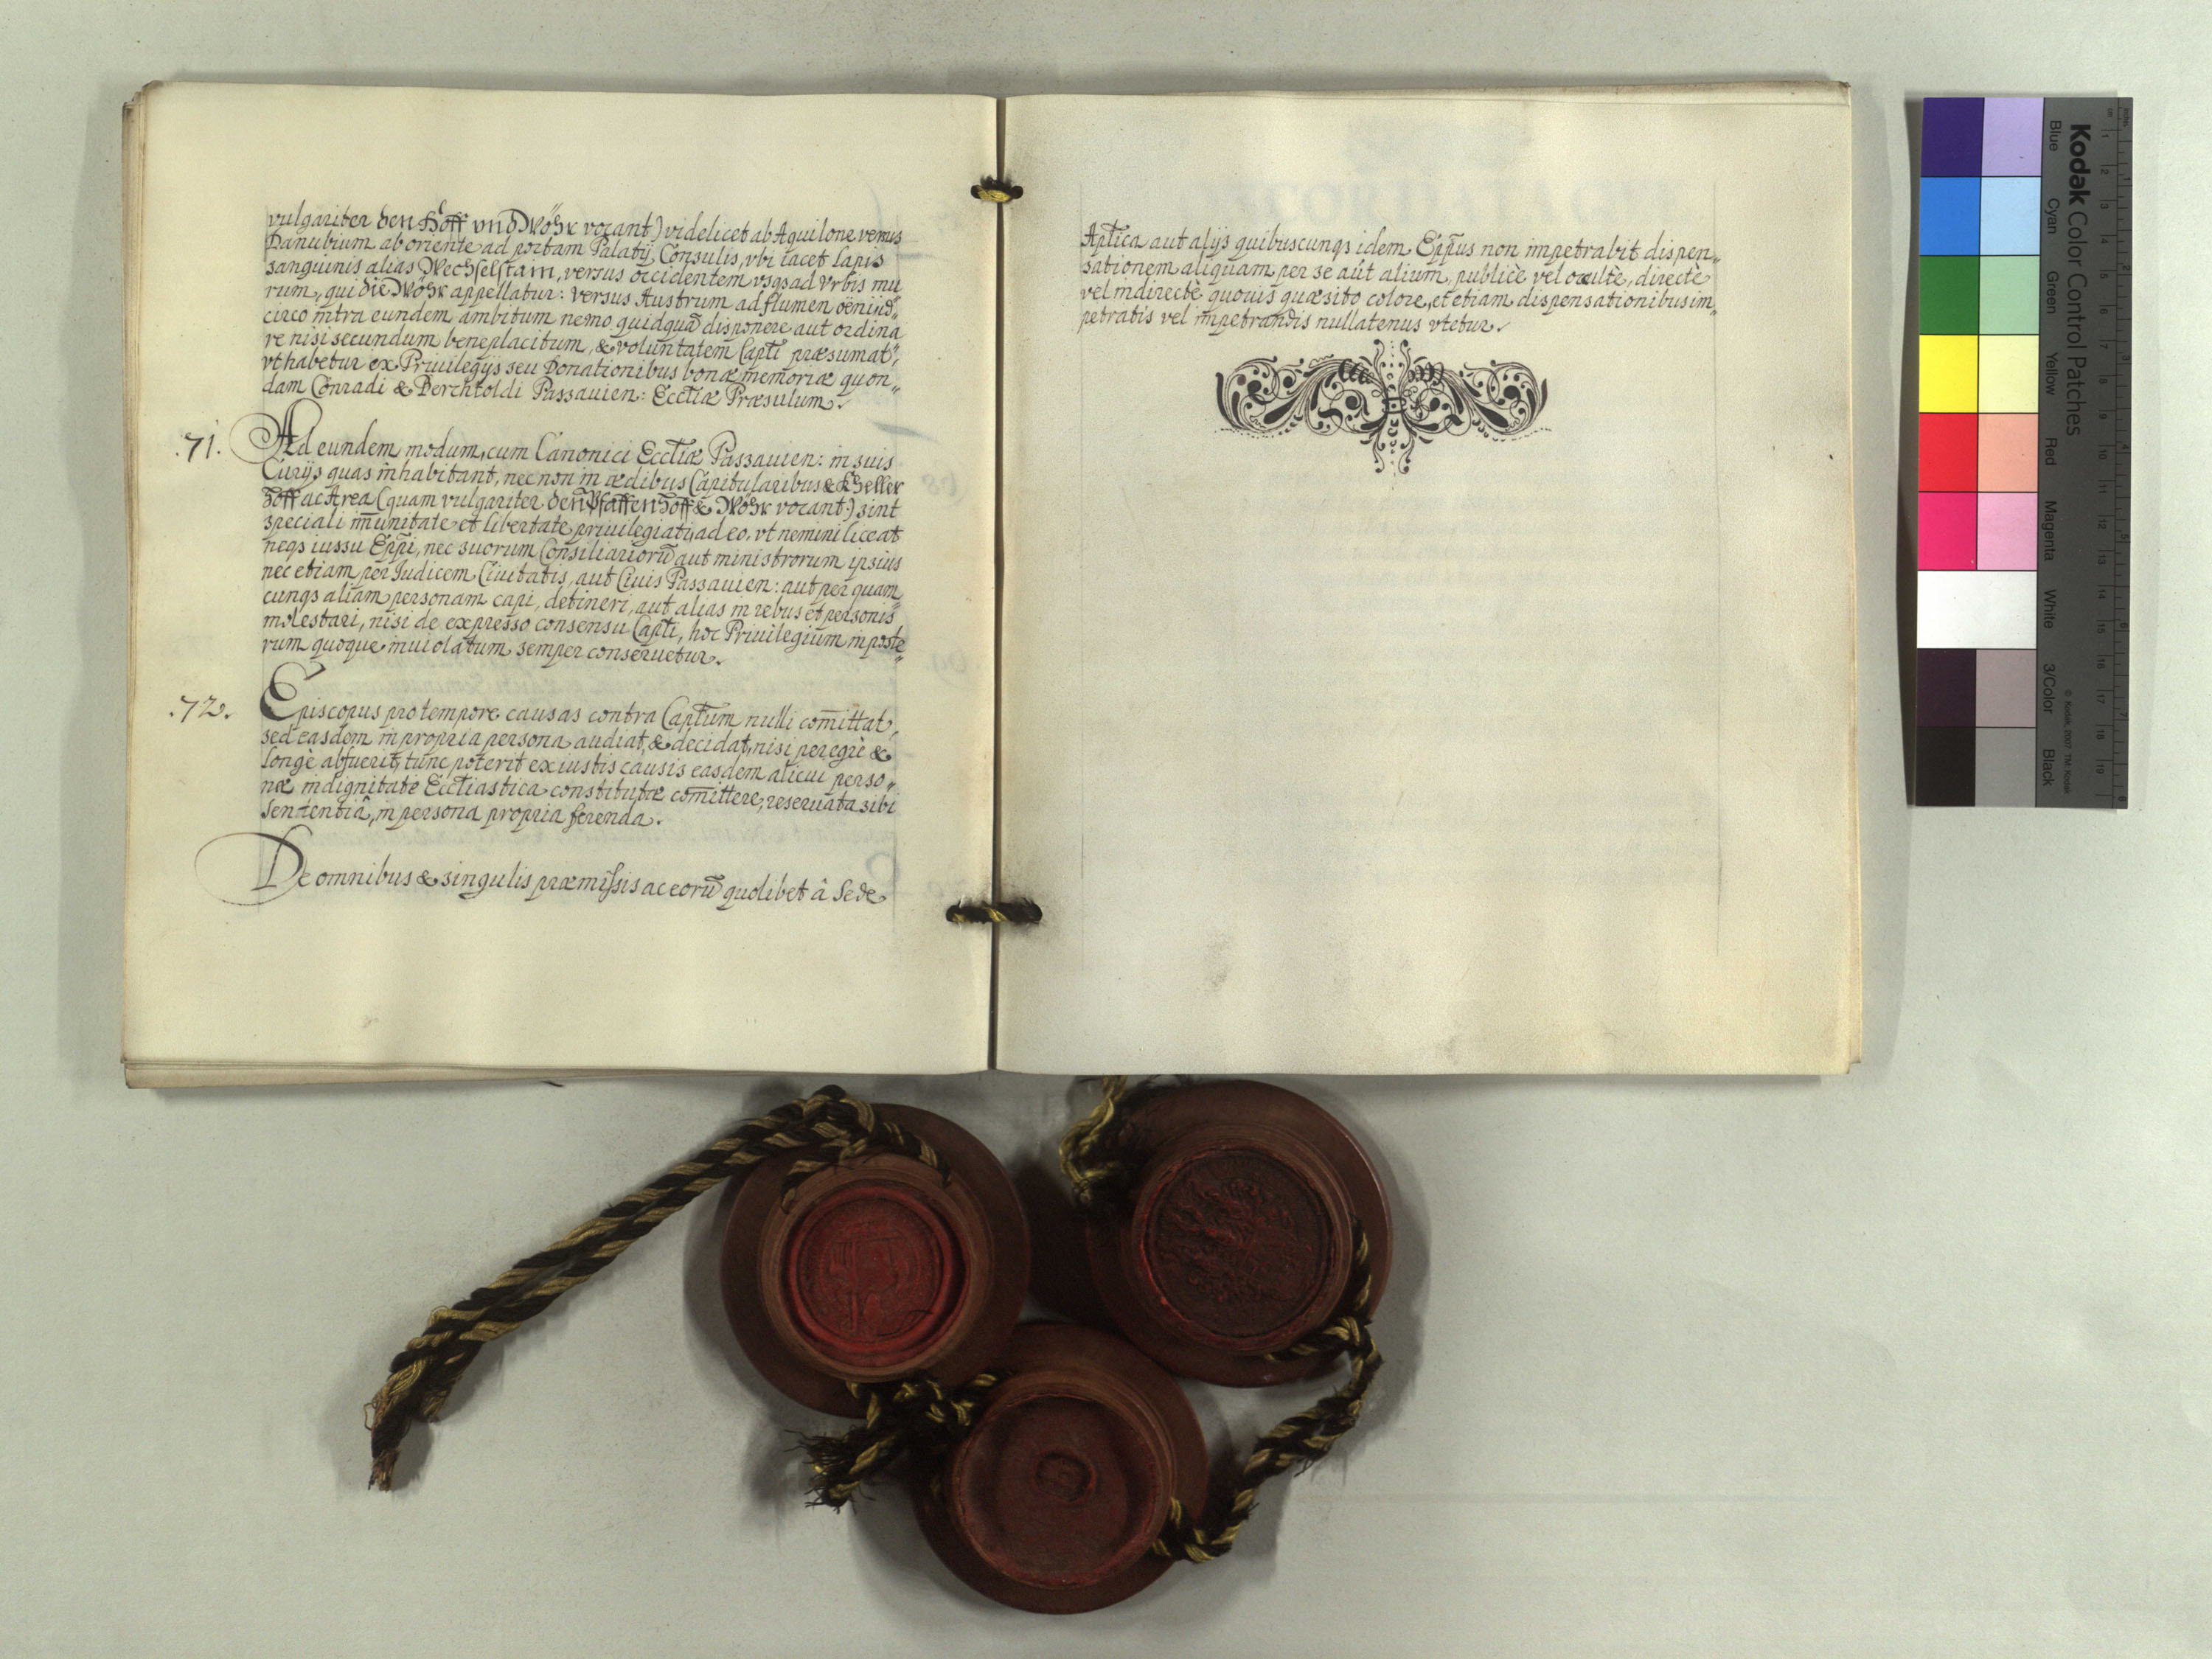 vulgariter den Hoff vnd Wöhr vocant) videlicet ab Aquilone versus
Danubium ab oriente ad portam Palatij, Consulis, vbi iacet lapis
sanguinis alias Wechselstain, versus occidentem vsqs ad Vrbis mu
rum, qui die Wöhr appellatur: versus Austrum ad flumen oëni id"
circo intra eundem ambitum nemo quidquã disponere aut ordina
re nisi secundum beneplacitum, & voluntatem Capti præsumat",
vt habetur ex Priuilegijs seu Donationibus bonæ memoriæ quon"
dam Conradi & Perchtoldi Passauien: Ecctiæ Præsulum.
.71. Ad eundem modum, cum Canonici Ecctiæ Passauien: in suis
Curijs quas inhabitant, nec non in ædibus Capitularibus & Kheller
hoff ac Area (quam vulgariter den Pfaffenhoff & Wöhr vocant:) sint
speciali im̄unitate et libertate priuilegiati, ad eo, vt nemini liceat
neqs iussu Epp̃i, nec suorum Consiliariorũ aut ministrorum ipsius
nec etiam per Iudicem Ciuitatis, aut Ciuis Passauien: aut per quam
cunqs aliam personam capi, detineri, aut alias in rebus et personis
molestari, nisi de expresso consensu Capti, hoc Priuilegium in poste"
rum quoque inuiolatum semper conseruetur.
.72. Episcopus pro tempore causas contra Captum nulli com̄ittat,
sed easdem in propria persona audiat, & decidat, nisi peregrè &
longè abfuerit, tunc poterit ex iustis causis easdem alicui perso"
næ in dignitate Ecctiastica constitutæ com̄ittere, reseruata sibi
sententiâ, in persona propria ferenda.
De omnibus & singulis præmissis ac eorũ quolibet â Sede
Aptica aut alijs quibuscunqs idem Epp̃us non impetrabit dispen"
sationem aliquam per se aût alium, publicè vel occultè, directè
vel indirectè quouis quæsito colore, et etiam dispensationibus im"
petratis vel impetrandis nullatenus vtetur.
Kodak Color Control Patches
Blue
Cyan
Green
Yellow
Red
Magenta
White
3/Color
Black
© Kodak, 2007 TM: Kodak